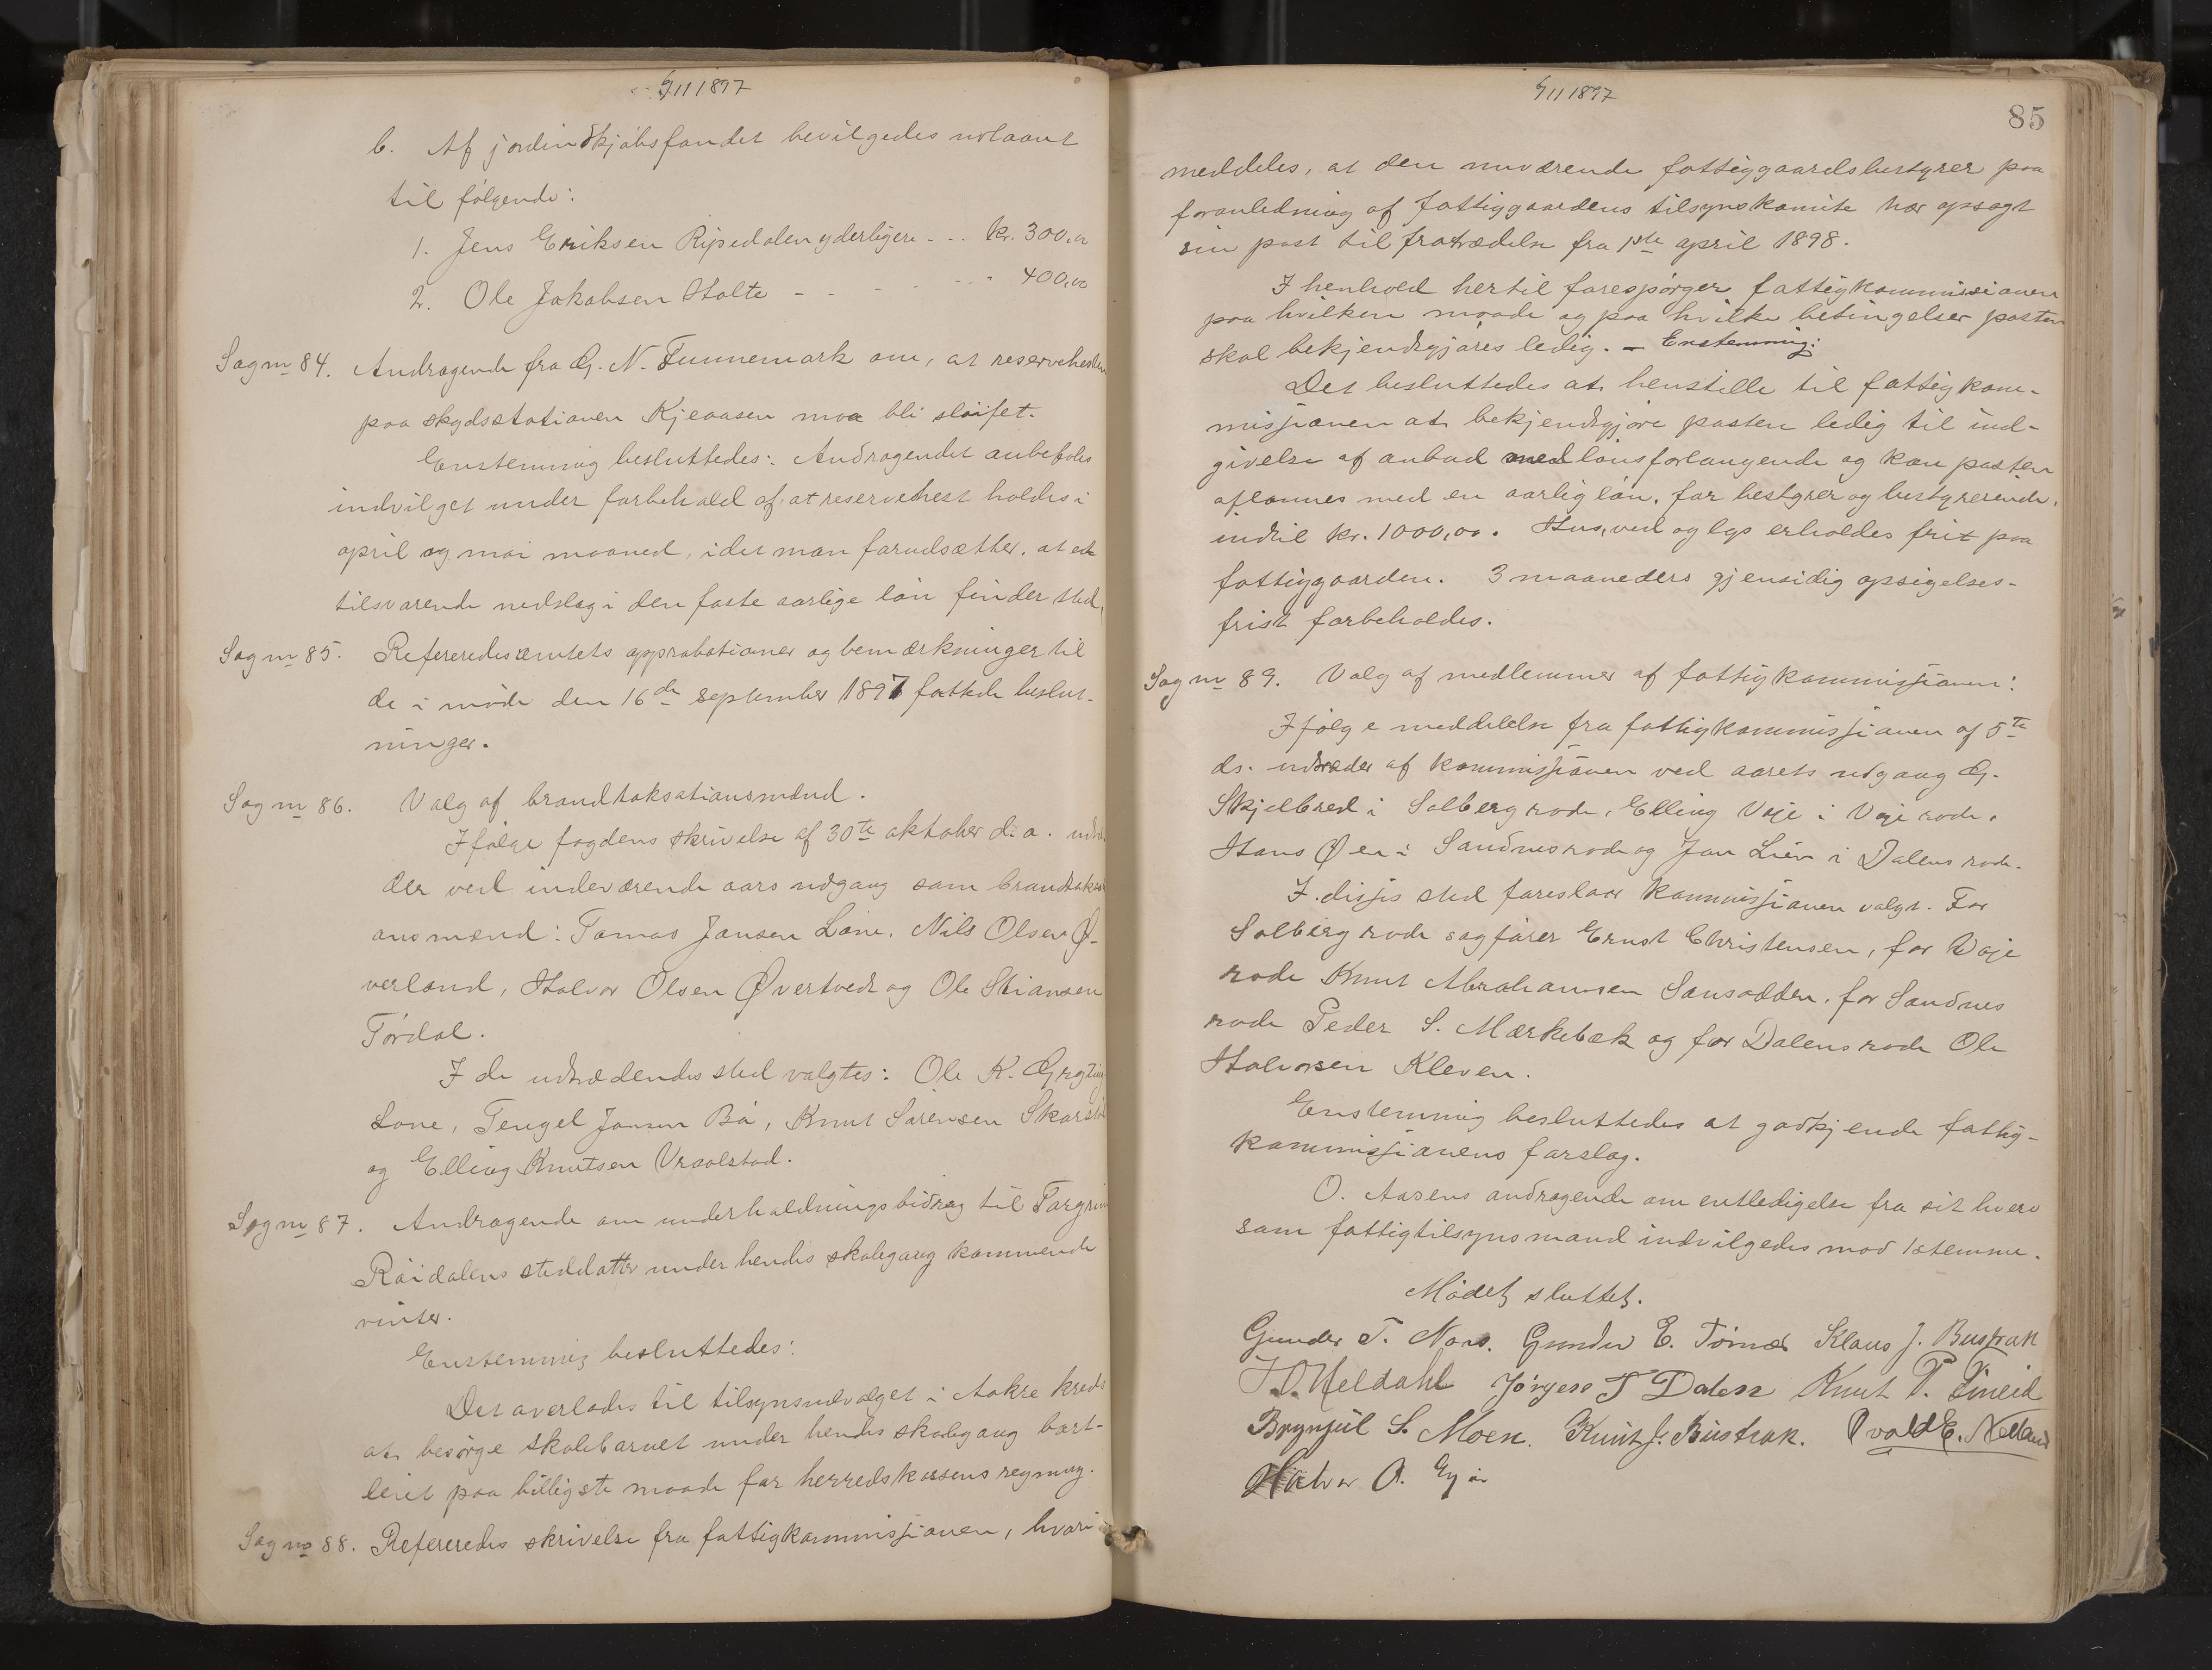 9/11 1897
b. Af jordindkjøbsfondet bevilgedes udlaant
til følgende:
1. Jens Eriksen Ripedalen yderligere - .. kr. 300,00
2. Ole Jakobsen Holte - - - - - - " 400,00
Sag no 84. Andragende fra G. N. Tunnemark om, at reservehesten
paa skydsstationen Kjeaasen maa bli sløifet.
Enstemmig besluttedes: Andragendet anbefales
indvilget under forbehold af, at reservehest holdes i
april og mai maaned, idet man forudsætter, at et
tilsvarende nedslag i den faste aarlige løn finder sted,
Sag no 85. Refereredes amtets approbationer og bemærkninger til
de i møde den 16de september 1897 fattede beslut-
ninger.
Sag no 86. Valg af brandtaksationsmænd.
Ifølge fogdens skrivelse af 30te oktober d. a. udtræ
der ved indeværende aars udgang som brandtaksati
onsmænd: Tomas Jansen Lone, Nils Olsen Ø-
verland, Halvor Olsen Øvertvedt og Ole Stiansen
Tørdal.
I de udtrædendes sted valgtes: Ole K. Grgting
Lone, Tengel Jansen Bø, Knut Sørensen Skarstøl
og Elling Knutsen Vraalstad.
Sag no 87. Andragende om underholdningsbidrag til Torgrim
Røidalens steddatter under hendes skolegang kommende
vinter.
Enstemmig besluttedes:
Det overlades til tilsynsudvalget i Aakre kreds
at besørge skolebarnet under hendes skolegang bort-
leiet paa billigste maade for herredskassens regning.
Sag no 88. Refereredes skrivelse fra fattigkommissionen, hvori
9/11 1897
85
meddeles, at den nuværende fattiggaardsbestyrer paa
foranledning af fattiggaardens tilsynskomite har opsagt
sin post til fratrædelse fra 1ste april 1898.
I henhold hertil forespørger fattigkommissionen
paa hvilken maade og paa hvilke betingelser posten
skal bekjendtgjøres ledig. - Enstemmig:
Det besluttedes at henstille til fattigkom-
missionen at bekjendtgjøre posten ledig til ind-
givelse af anbud med lønsforlangende og kan posten
aflønnes med en aarlig løn, for bestyrer og bestyrerinde,
indtil kr. 1000,00. Hus, ved og lys erholdes frit paa
fattiggaarden. 3 maaneders gjensidig opsigelses-
frist forbeholdes.
Sag no 89. Valg af medlemmer af fattigkommissionen:
Ifølge meddelelse fra fattigkommissionen af 5te
ds. udtræder af kommissionen ved aarets udgang G.
Skjelbred i Solberg rode, Elling Vaje i Vaje rode,
Hans Øen i Sandnes rode og Jan Lien i Dalens rode.
I disses sted foreslaar kommissionen valgt. For
Solberg rode sagfører Ernst Christensen, for Vaje
rode Knut Abrahamsen Sansodden, for Sandnes
rode Peder S. Mærkebæk og for Dalens rode Ole
Halvorsen Kleven.
Enstemmig besluttedes at godkjende fattig-
kommissionens forslag.
O. Aasens andragende om entledigelse fra sit hverv
som fattigtilsynsmand indvilgedes mod 1 stemme.
Mødet sluttet.
Gunder T. Nars. Gunder E. Tørnes Klaus J. Bustrak
H. O. Meldahl Jørgen T Dalen Knut P. Smeid
Brynjul S. Moen. Knut J. Bustrak. Ovald E. Nelland
Halvor O.